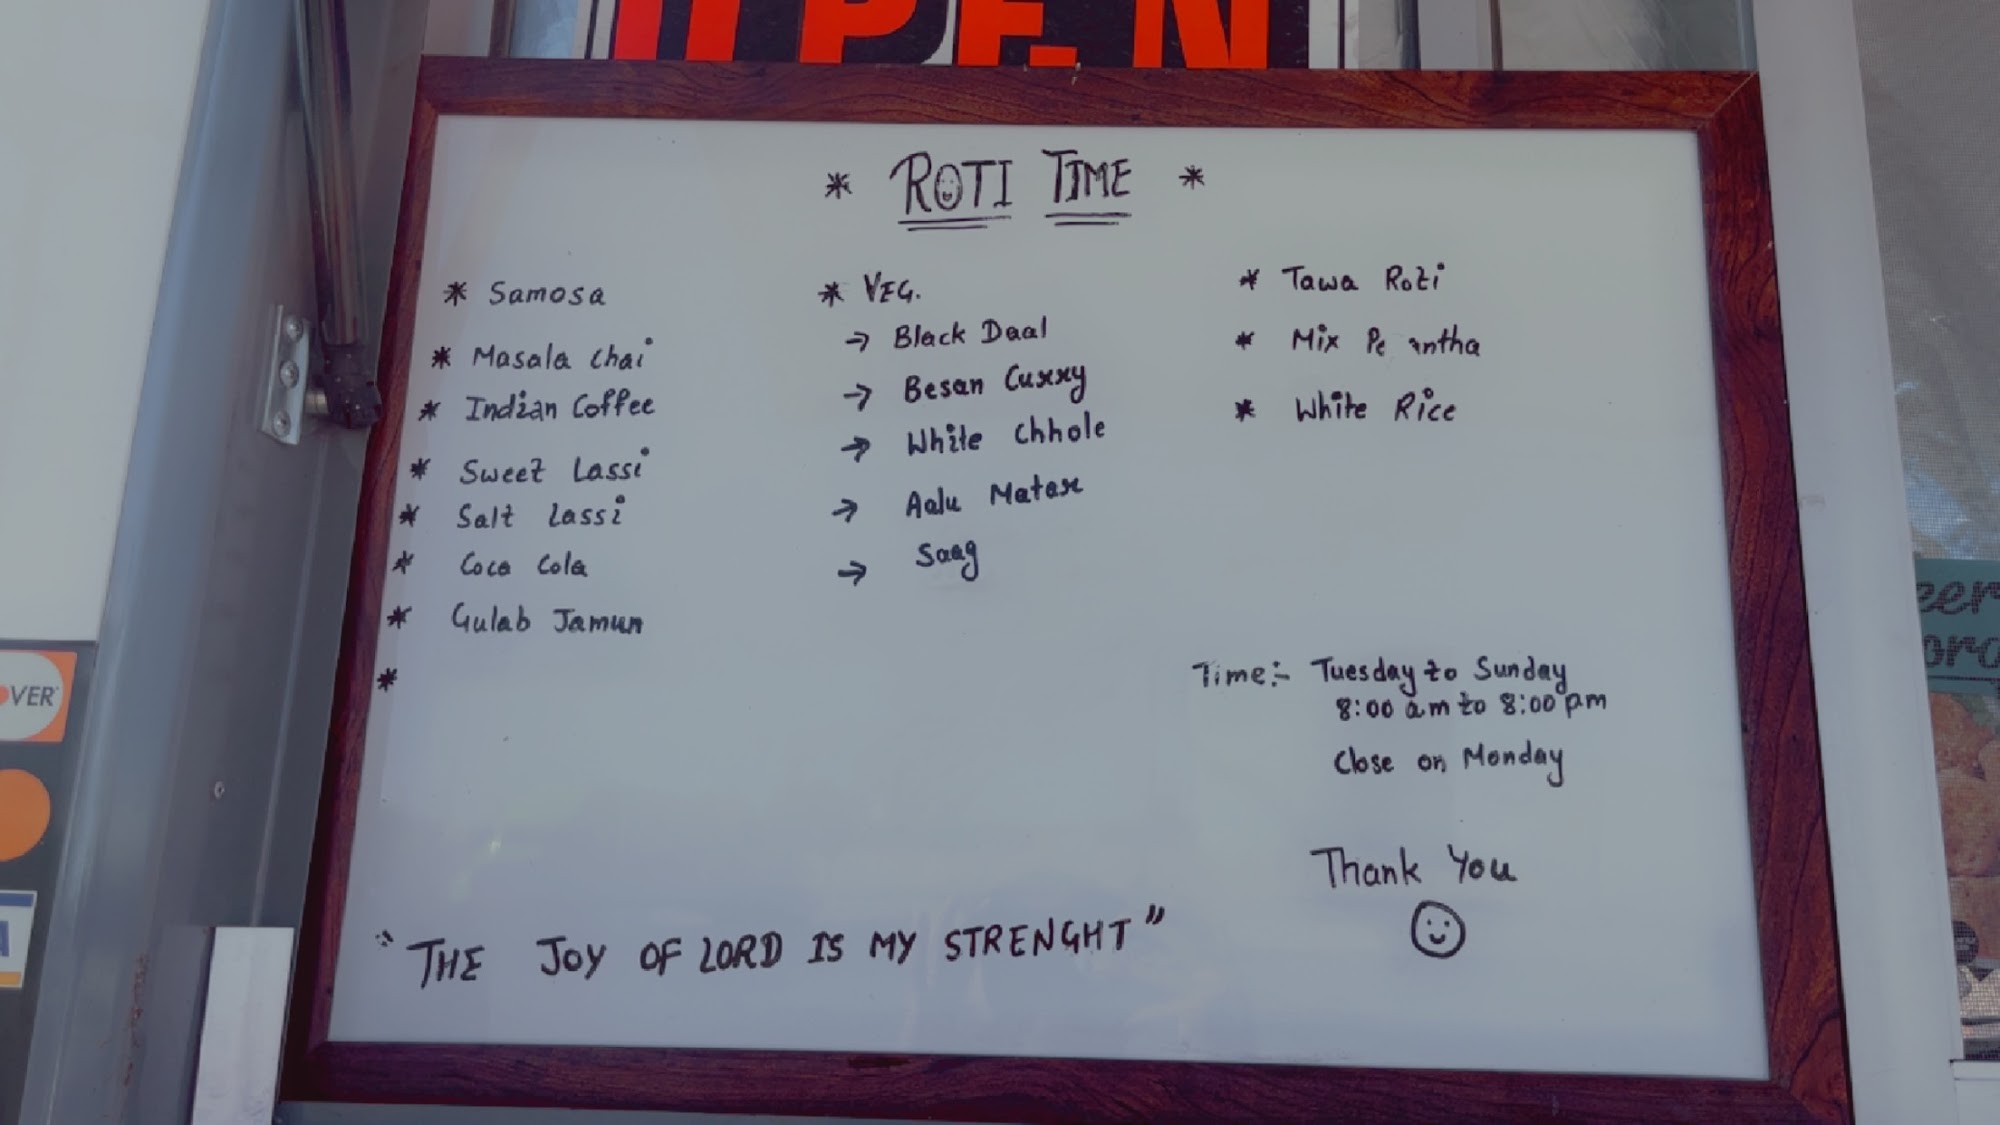 OPEN
* ROTI TIME *
* Samosa
* Masala Chai
* Indian Coffee
* Sweet Lassi
* Salt Lassi
* Coca Cola
* Gulab Jamun
*
* VEG.
→ Black Daal
→ Besan Curry
→ White Chhole
→ Aalu Matar
→ Saag
* Tawa Roti
* Mix Pe antha
* White Rice
Time:- Tuesday to Sunday
8:00 am to 8:00 pm
Close on Monday
Thank You
"THE JOY OF LORD IS MY STRENGHT"
OVER